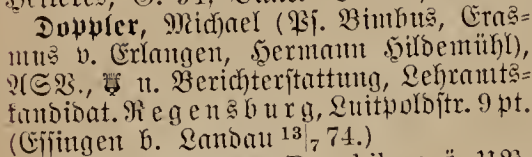 Doppler, Michael (Ps. Bimbus, Eras=
mus v. Erlangen, Hermann Hildemühl),
ASV., u. Berichterstattung, Lehramts=
kandidat. Regensburg, Luitpoldstr. 9 pt.
(Essingen b. Landau 13/7 74.)